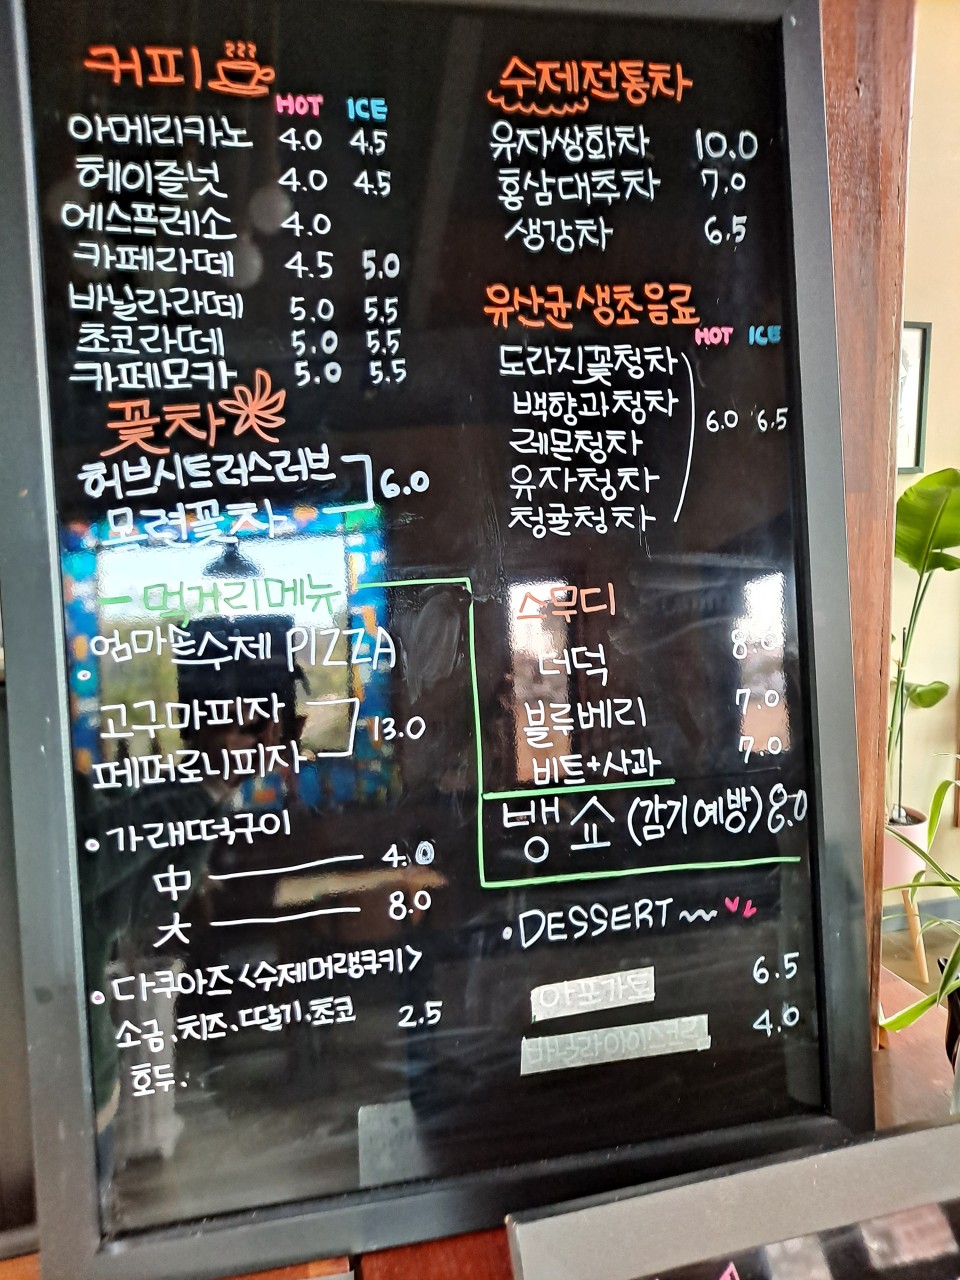 커피
HOT ICE
아메리카노 4.0 4.5
헤이즐넛 4.0 4.5
에스프레소 4.0
카페라떼 4.5 5.0
바닐라라떼 5.0 5.5
초코라떼 5.0 5.5
카페모카 5.0 5.5
꽃차
허브시트러스러브 6.0
목련꽃차
먹거리메뉴
엄마손수제 PIZZA
고구마피자 13.0
페퍼로니피자
가래떡구이
中 4.0
大 8.0
다쿠아즈 <수제머랭쿠키>
소금, 치즈, 딸기, 초코 2.5
호두.
수제전통차
유자쌍화차 10.0
홍삼대추차 7.0
생강차 6.5
유산균생초음료
HOT ICE
도라지꽃청차
백향과청차 6.0 6.5
레몬청차
유자청차
청귤청차
스무디
더덕 8.0
블루베리 7.0
비트+사과 7.0
뱅쇼 (감기예방) 8.0
DESSERT
아포가토 6.5
4.0